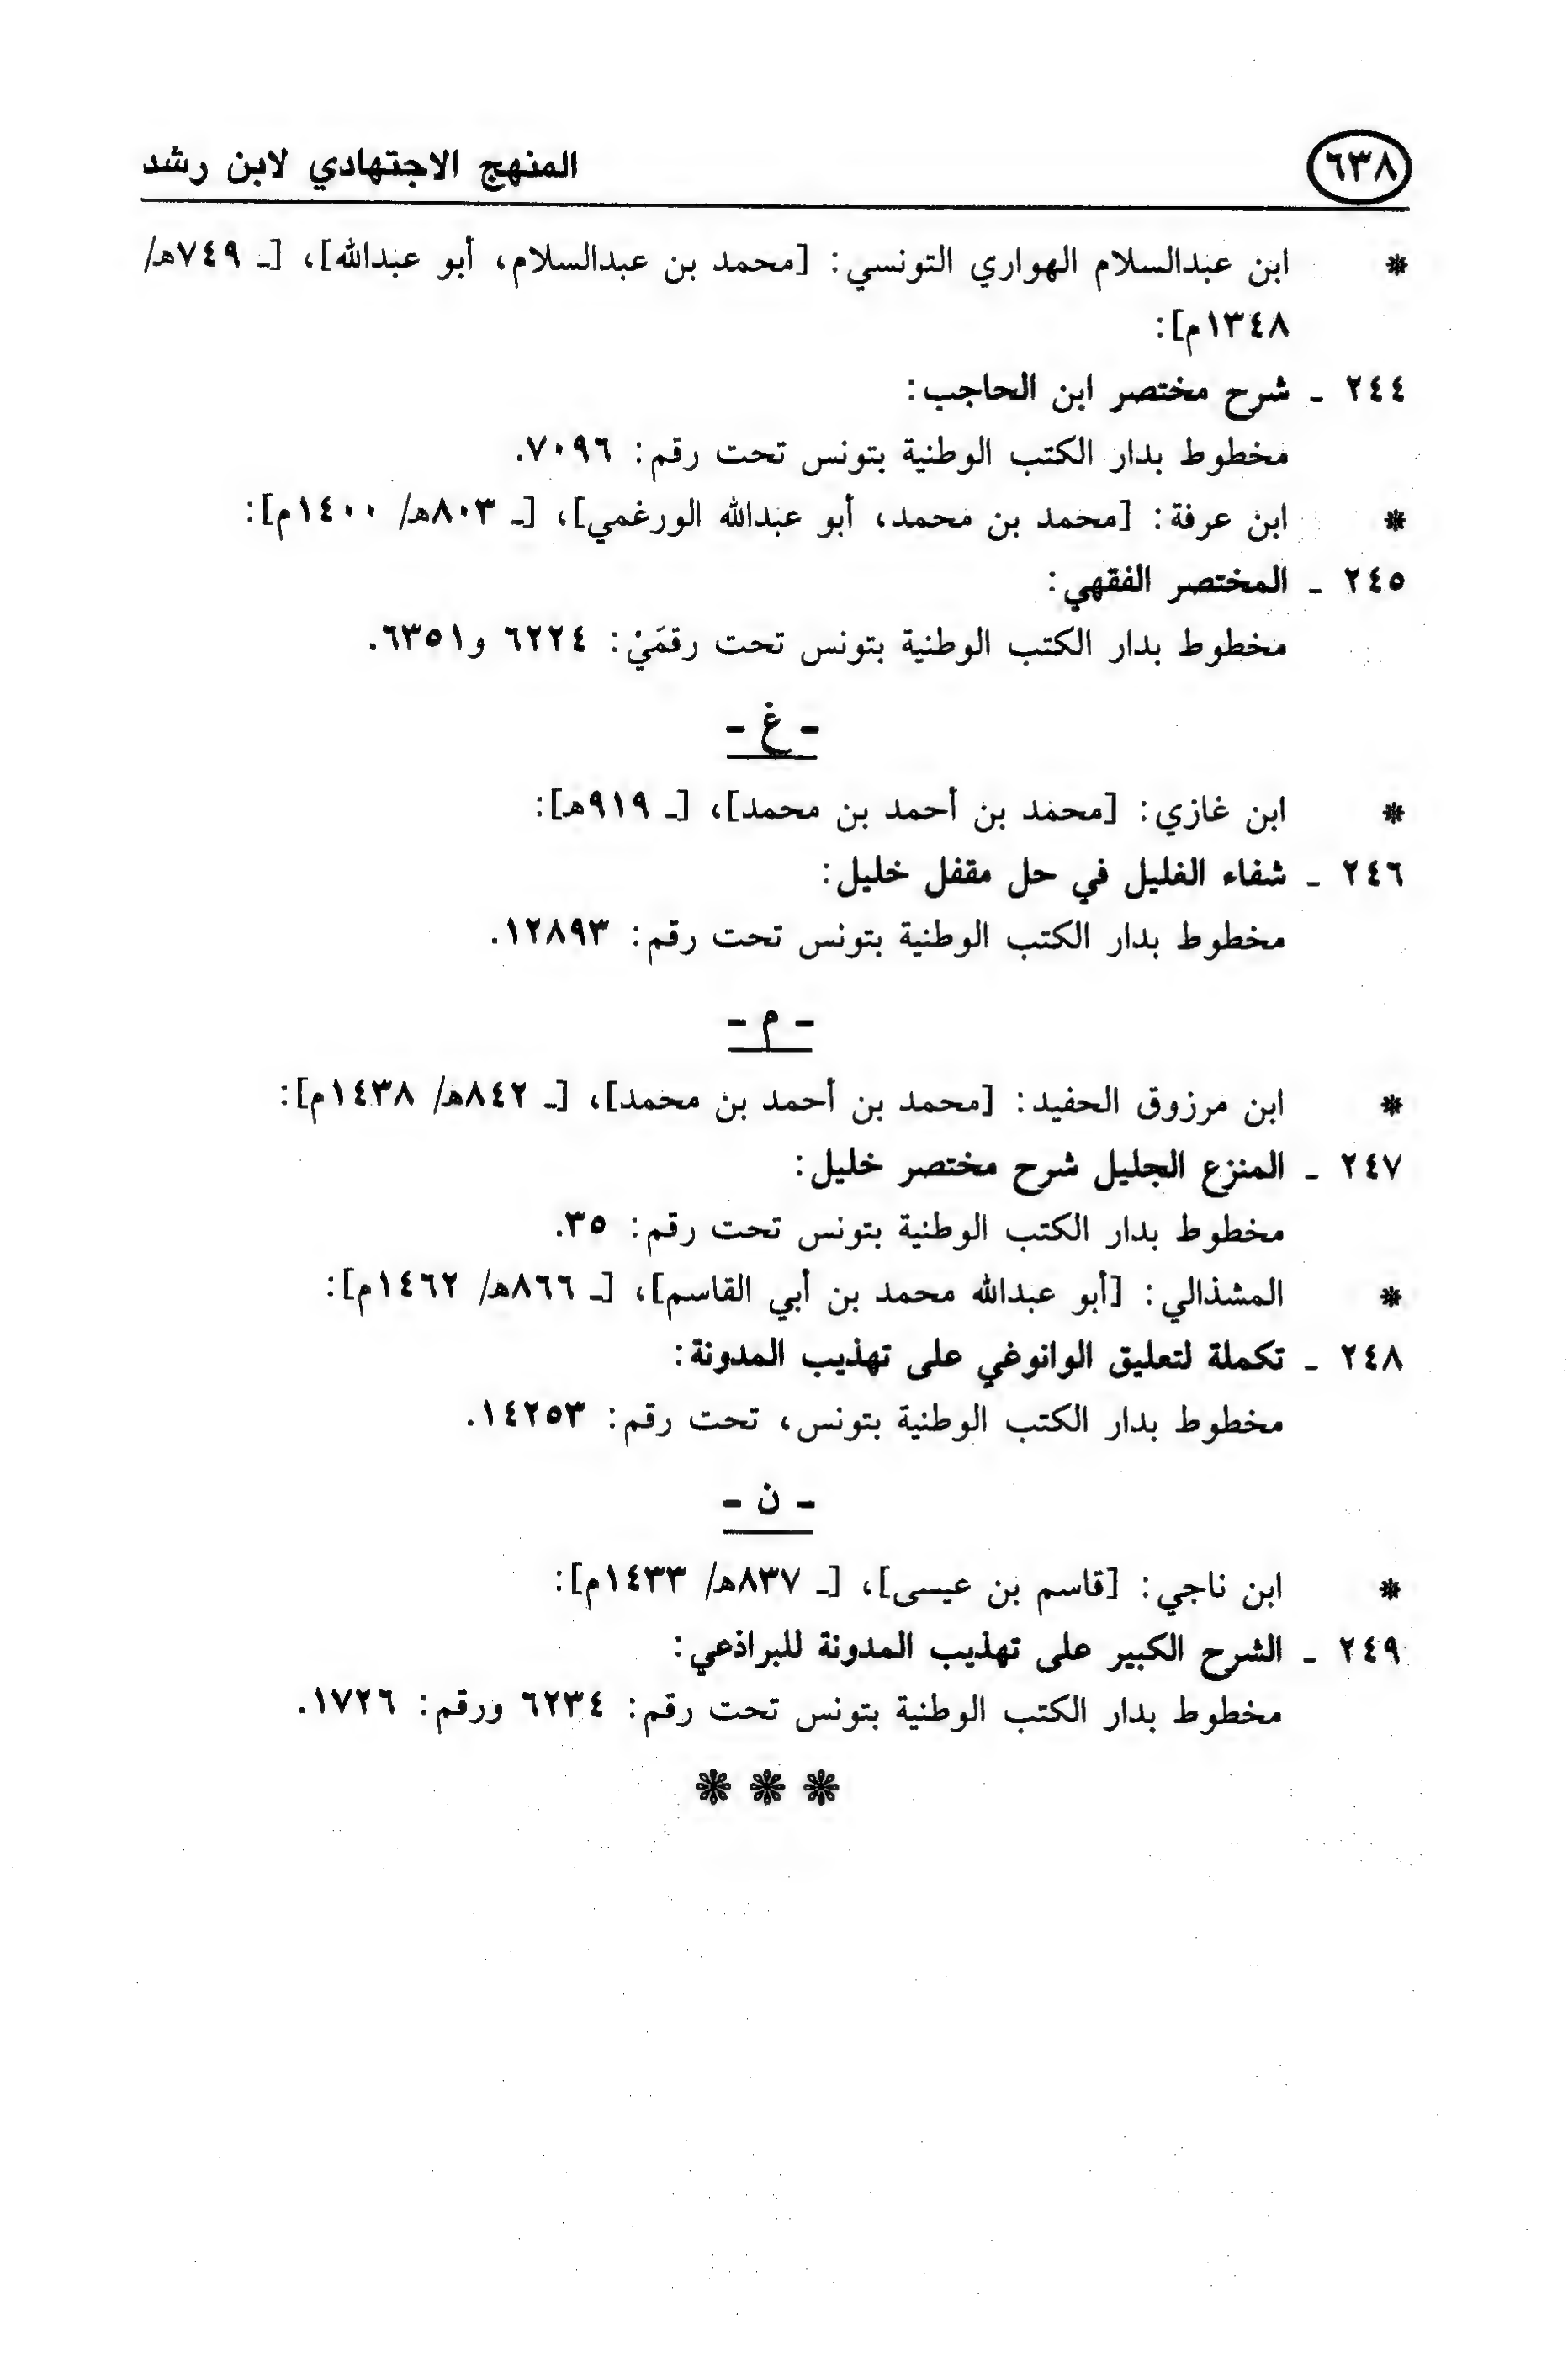 ٦٣٨ المنهج الاجتهادي لابن رشد
* ابن عبدالسلام الهواري التونسي: [محمد بن عبدالسلام، أبو عبدالله]، [ـ ٧٤٩هـ/
١٣٤٨م]:
٢٤٤ ـ شرح مختصر ابن الحاجب:
مخطوط بدار الكتب الوطنية بتونس تحت رقم: ٧٠٩٦.
* ابن عرفة: [محمد بن محمد، أبو عبدالله الورغمي]، [ـ ٨٠٣هـ/ ١٤٠٠م]:
٢٤٥ ـ المختصر الفقهي:
مخطوط بدار الكتب الوطنية بتونس تحت رقمَيْ: ٦٢٢٤ و٦٣٥١.
- غ -
* ابن غازي: [محمد بن أحمد بن محمد]، [ـ ٩١٩هـ]:
٢٤٦ ـ شفاء الغليل في حل مقفل خليل:
مخطوط بدار الكتب الوطنية بتونس تحت رقم: ١٢٨٩٣.
- م -
* ابن مرزوق الحفيد: [محمد بن أحمد بن محمد]، [ـ ٨٤٢هـ/ ١٤٣٨م]:
٢٤٧ ـ المنزع الجليل شرح مختصر خليل:
مخطوط بدار الكتب الوطنية بتونس تحت رقم: ٣٥.
* المشذالي: [أبو عبدالله محمد بن أبي القاسم]، [ـ ٨٦٦هـ/ ١٤٦٢م]:
٢٤٨ ـ تكملة لتعليق الوانوغي على تهذيب المدونة:
مخطوط بدار الكتب الوطنية بتونس، تحت رقم: ١٤٢٥٣.
- ن -
* ابن ناجي: [قاسم بن عيسى]، [ـ ٨٣٧هـ/ ١٤٣٣م]:
٢٤٩ ـ الشرح الكبير على تهذيب المدونة للبراذعي:
مخطوط بدار الكتب الوطنية بتونس تحت رقم: ٦٢٣٤ ورقم: ١٧٢٦.
* * *